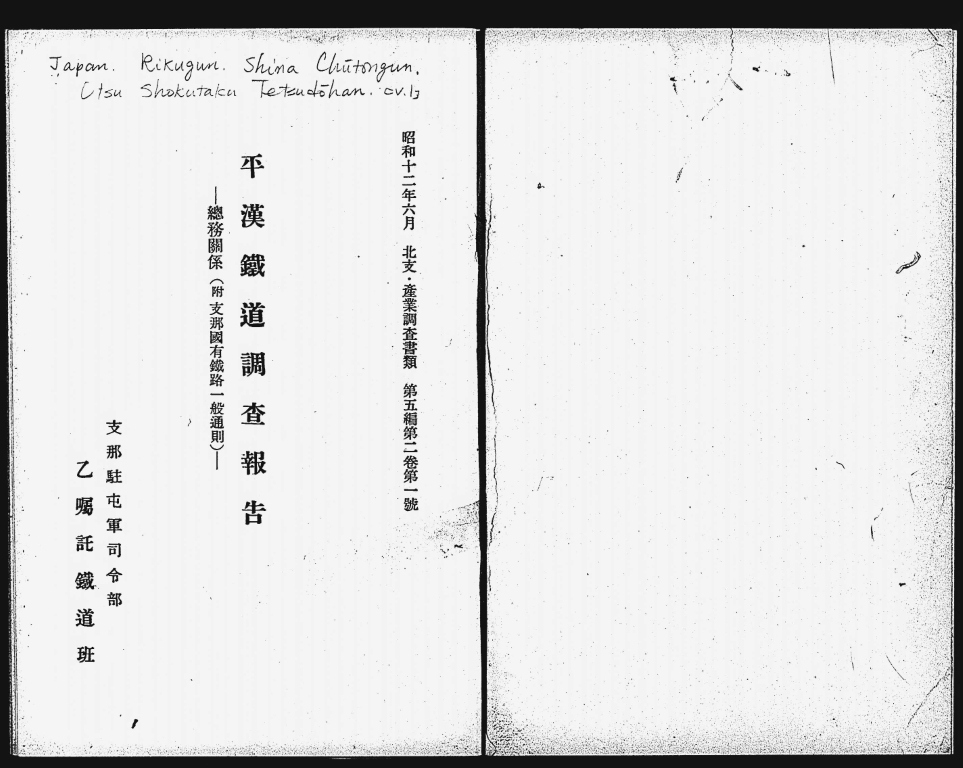 Japan. Rikugun. Shina Chūtongun.
Otsu Shokutaku Tetsudōhan. cv.1]
昭和十二年六月　北支・產業調査書類　第五編第二卷第一號
平漢鐵道調查報告
―總務關係（附 支那國有鐵路一般通則）―
支那駐屯軍司令部
乙囑託鐵道班